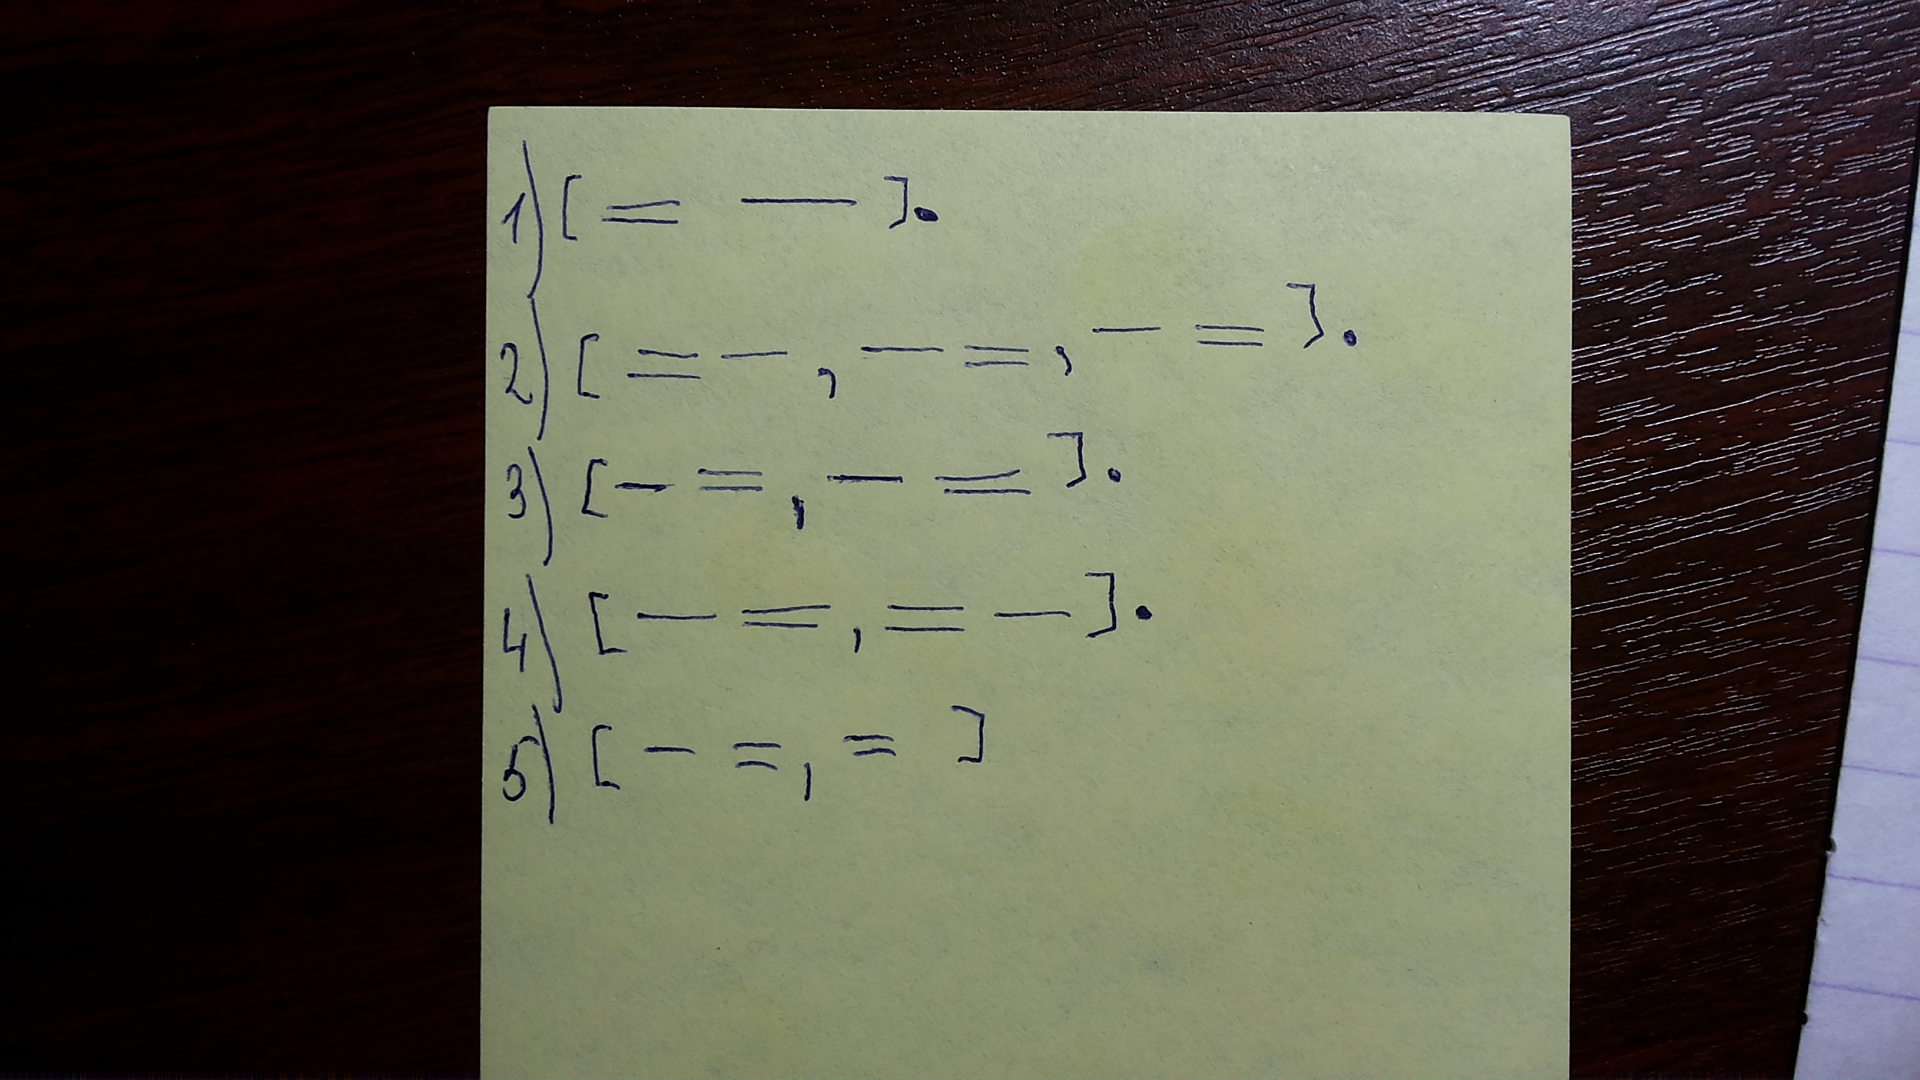 1) [ = — ].
2) [ = — , — = , — = ].
3) [ — = , — = ].
4) [ — = , = — ].
5) [ — = , = ]